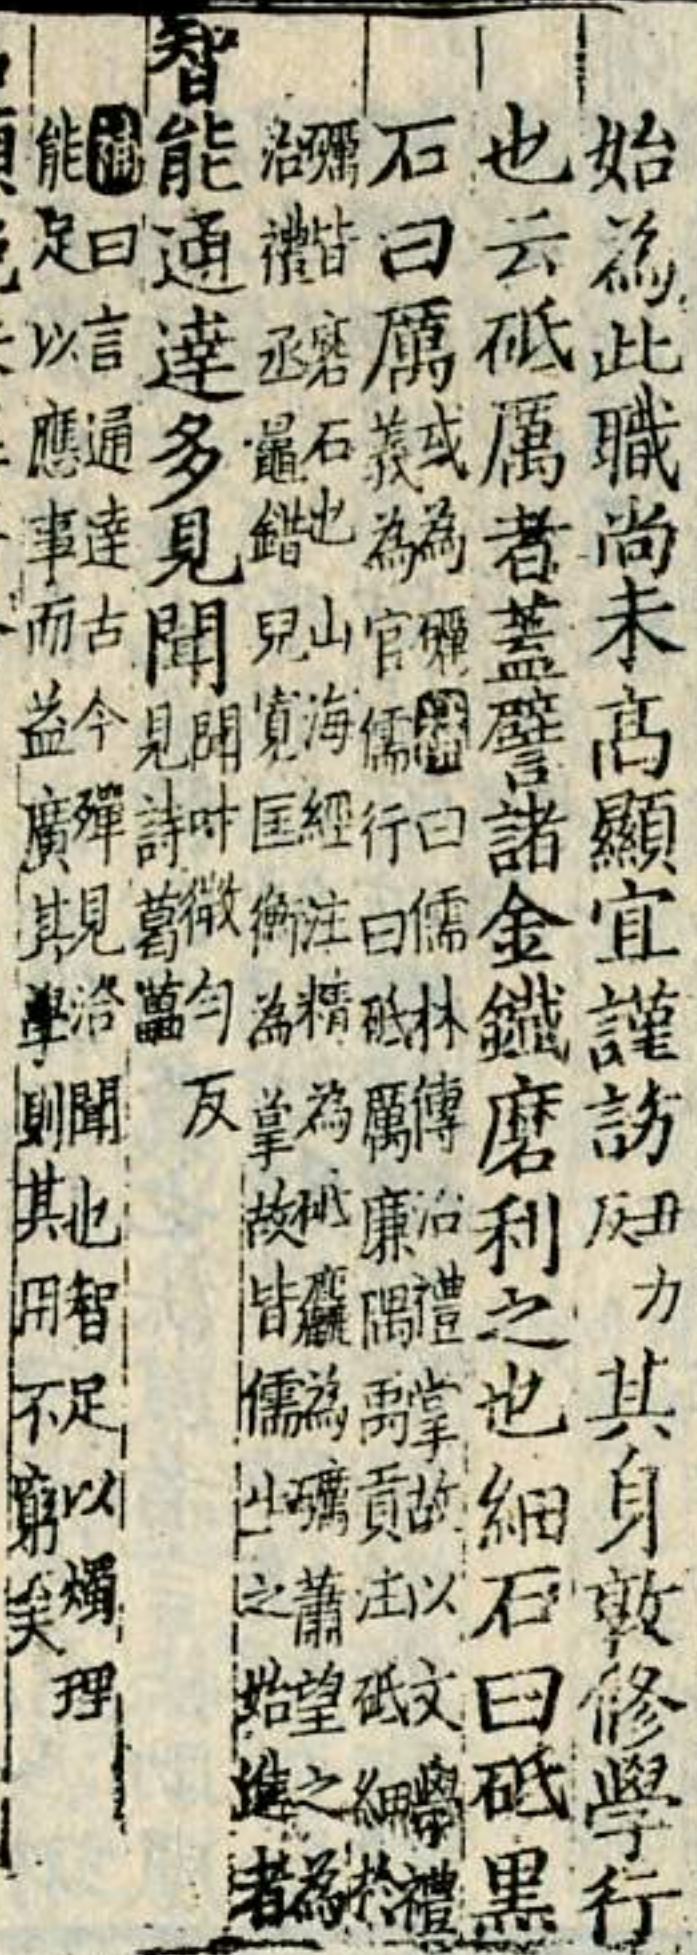 始為此職尚未高顯宜謹訪丑力反其身敦修學行
也云砥厲者蓋譬諸金鐵磨利之也細石曰砥黑
石曰厲或為礪曰儒林傳治禮掌故以文學禮
義為官儒行曰砥厲廉隅禹貢注砥細於
礪皆磨石也山海經注精為砥麤為礪蕭望之為
治禮丞鼂錯兒寬匡衡為掌故皆儒生之始進者
智能通達多見聞聞叶微勻反
見詩葛藟
曰言通達古今殫見洽聞也智足以燭理
能足以應事而益廣其學則其用不窮矣